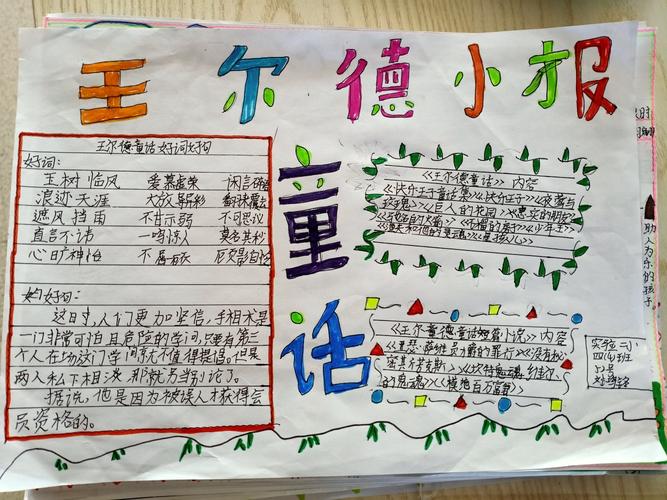 王尔德小报
王尔德童话好词好句
好词:
玉树临风 爱慕虚荣 闲言碎语
浪迹天涯 大放异彩
遮风挡雨 不甘示弱 不可思议
直言不讳 一鸣惊人 莫名其妙
心旷神怡 不屑
好词:
这时,人们更加坚信,手相术是
一门非常可怕且危险的学问,只要有第三
个人在场这门学问就不值得提倡。但是
两人私下相谈,那就另当别论了。
据说,他是因为被误人才获得会
员资格的。
童话
《王尔德童话》内容
《快乐王子童话集》《快乐王子》《夜莺与
玫瑰》《巨人的花园》《忠实的朋友》
《了不起的火箭》《石榴的房子》《少年王》
《渔夫和他的灵魂》《星孩儿》
《王尔德童话短篇小说》内容
《亚瑟·萨维尔勋爵的罪行》《没有秘
密的斯芬克斯》《坎特维尔
的鬼魂》《模范百万富翁》
实验二小
四(4)班
51号
助
人
为
乐
的
孩
子。